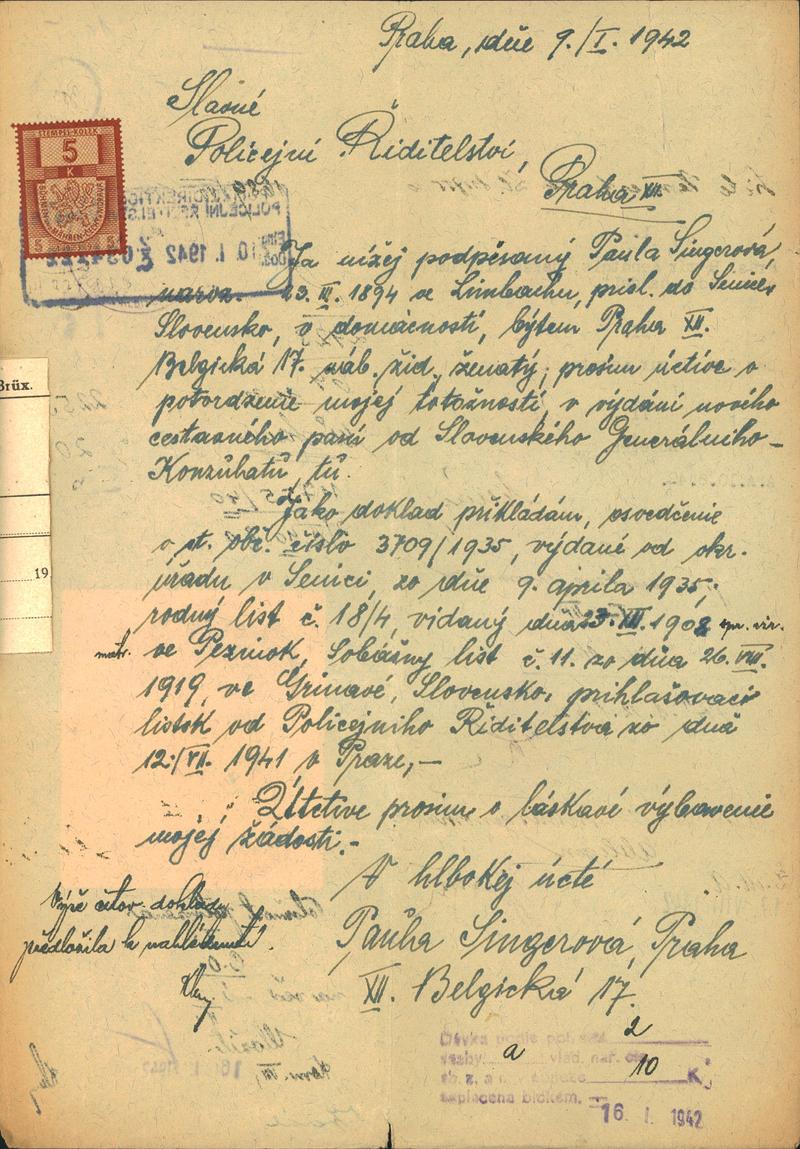 Praha, dňe 9./I. 1942
Slavné
Policejní Řiditelství,
Praha XII.
SZEMPEL-KOLEK
5
K
Ja nížej podpěsaný Paula Singerová,
naroz. 23. III. 1894 ve Limbachu, prisl. do Senice,
Slovensko, v domácností, bytem Praha XII.
Belgická 17. náb. žid., ženatý, prosim úctive o
potvrdzenie mojej totožností, v výdání nového
cestovného pasú od Slovenského Generálního-
Konzúlatú tú.
Jako doklad přikládám, osvedčenie
o st. obč. číslo 3709/1935, výdané od okr.
úřadu v Senici, zo dňe 9. aprila 1935,
rodný list č. 18/4, vidaný dňa 23. III. 1902
matr. ve Pezinok, Sobášny list č. 11. zo dňa 26. VIII.
1919, ve Grinavé, Slovensko, prihlašovací
lístek od Policejniho Řiditelstva zo dňa
12./VII. 1941 v Praze,-
Úctive prosim o láskavé výbavenie
mojej žádosti.-
V hlbokej úcté
Paula Singerová, Praha
XII. Belgická 17.
Výše citov. doklady
předložila k nahlédnutí.
Brüx.
19
10. I. 1942
Dávka podle pol.
2
a
vlád. nař. čís.
10
K
zaplacena blokem.
16. I. 1942